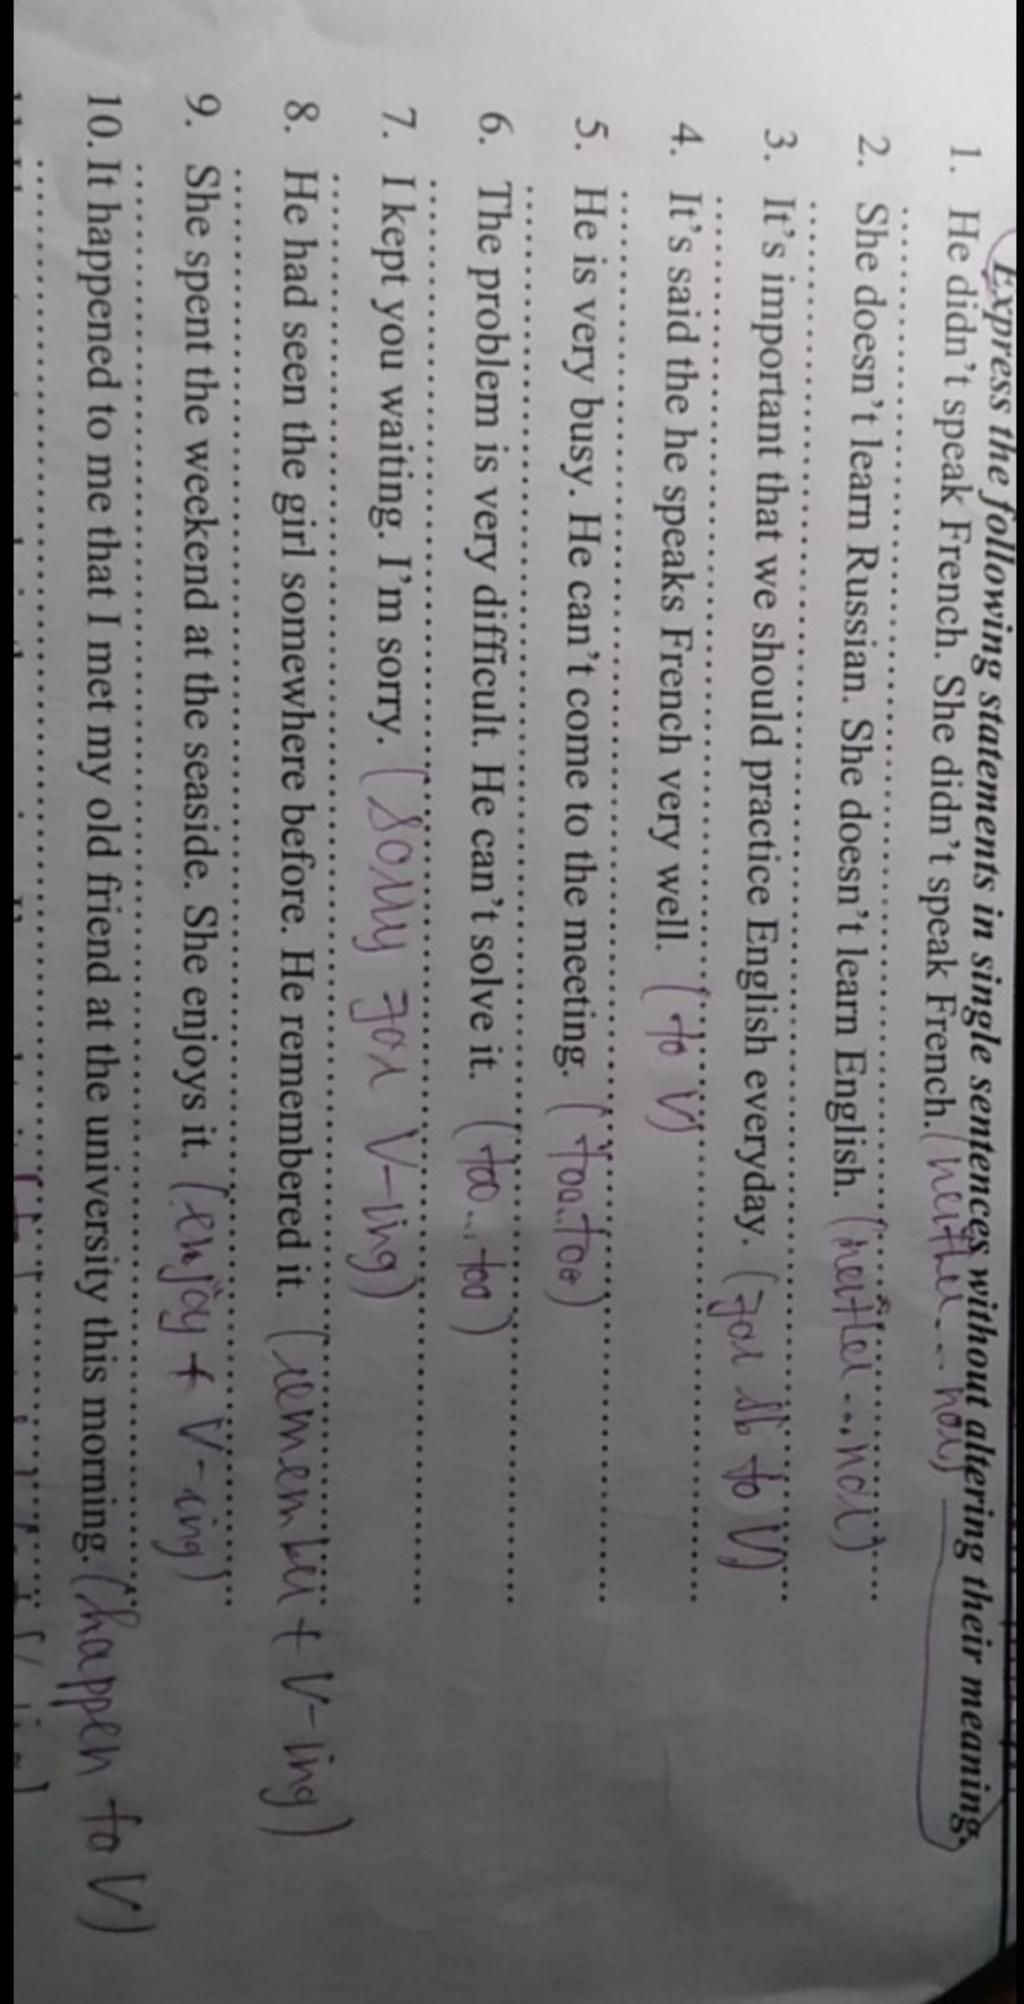 Express the following statements in single sentences without altering their meaning.
1. He didn't speak French. She didn't speak French. (neither --- nor)
2. She doesn't learn Russian. She doesn't learn English. (neither ... nor)
3. It's important that we should practice English everyday. (for sb to V)
4. It's said the he speaks French very well. (to V)
5. He is very busy. He can't come to the meeting. (too..too)
6. The problem is very difficult. He can't solve it. (too... too)
7. I kept you waiting. I'm sorry. (sorry for V-ing)
8. He had seen the girl somewhere before. He remembered it. (remember + V-ing)
9. She spent the weekend at the seaside. She enjoys it. (enjoy + V-ing)
10. It happened to me that I met my old friend at the university this morning. (happen to V)